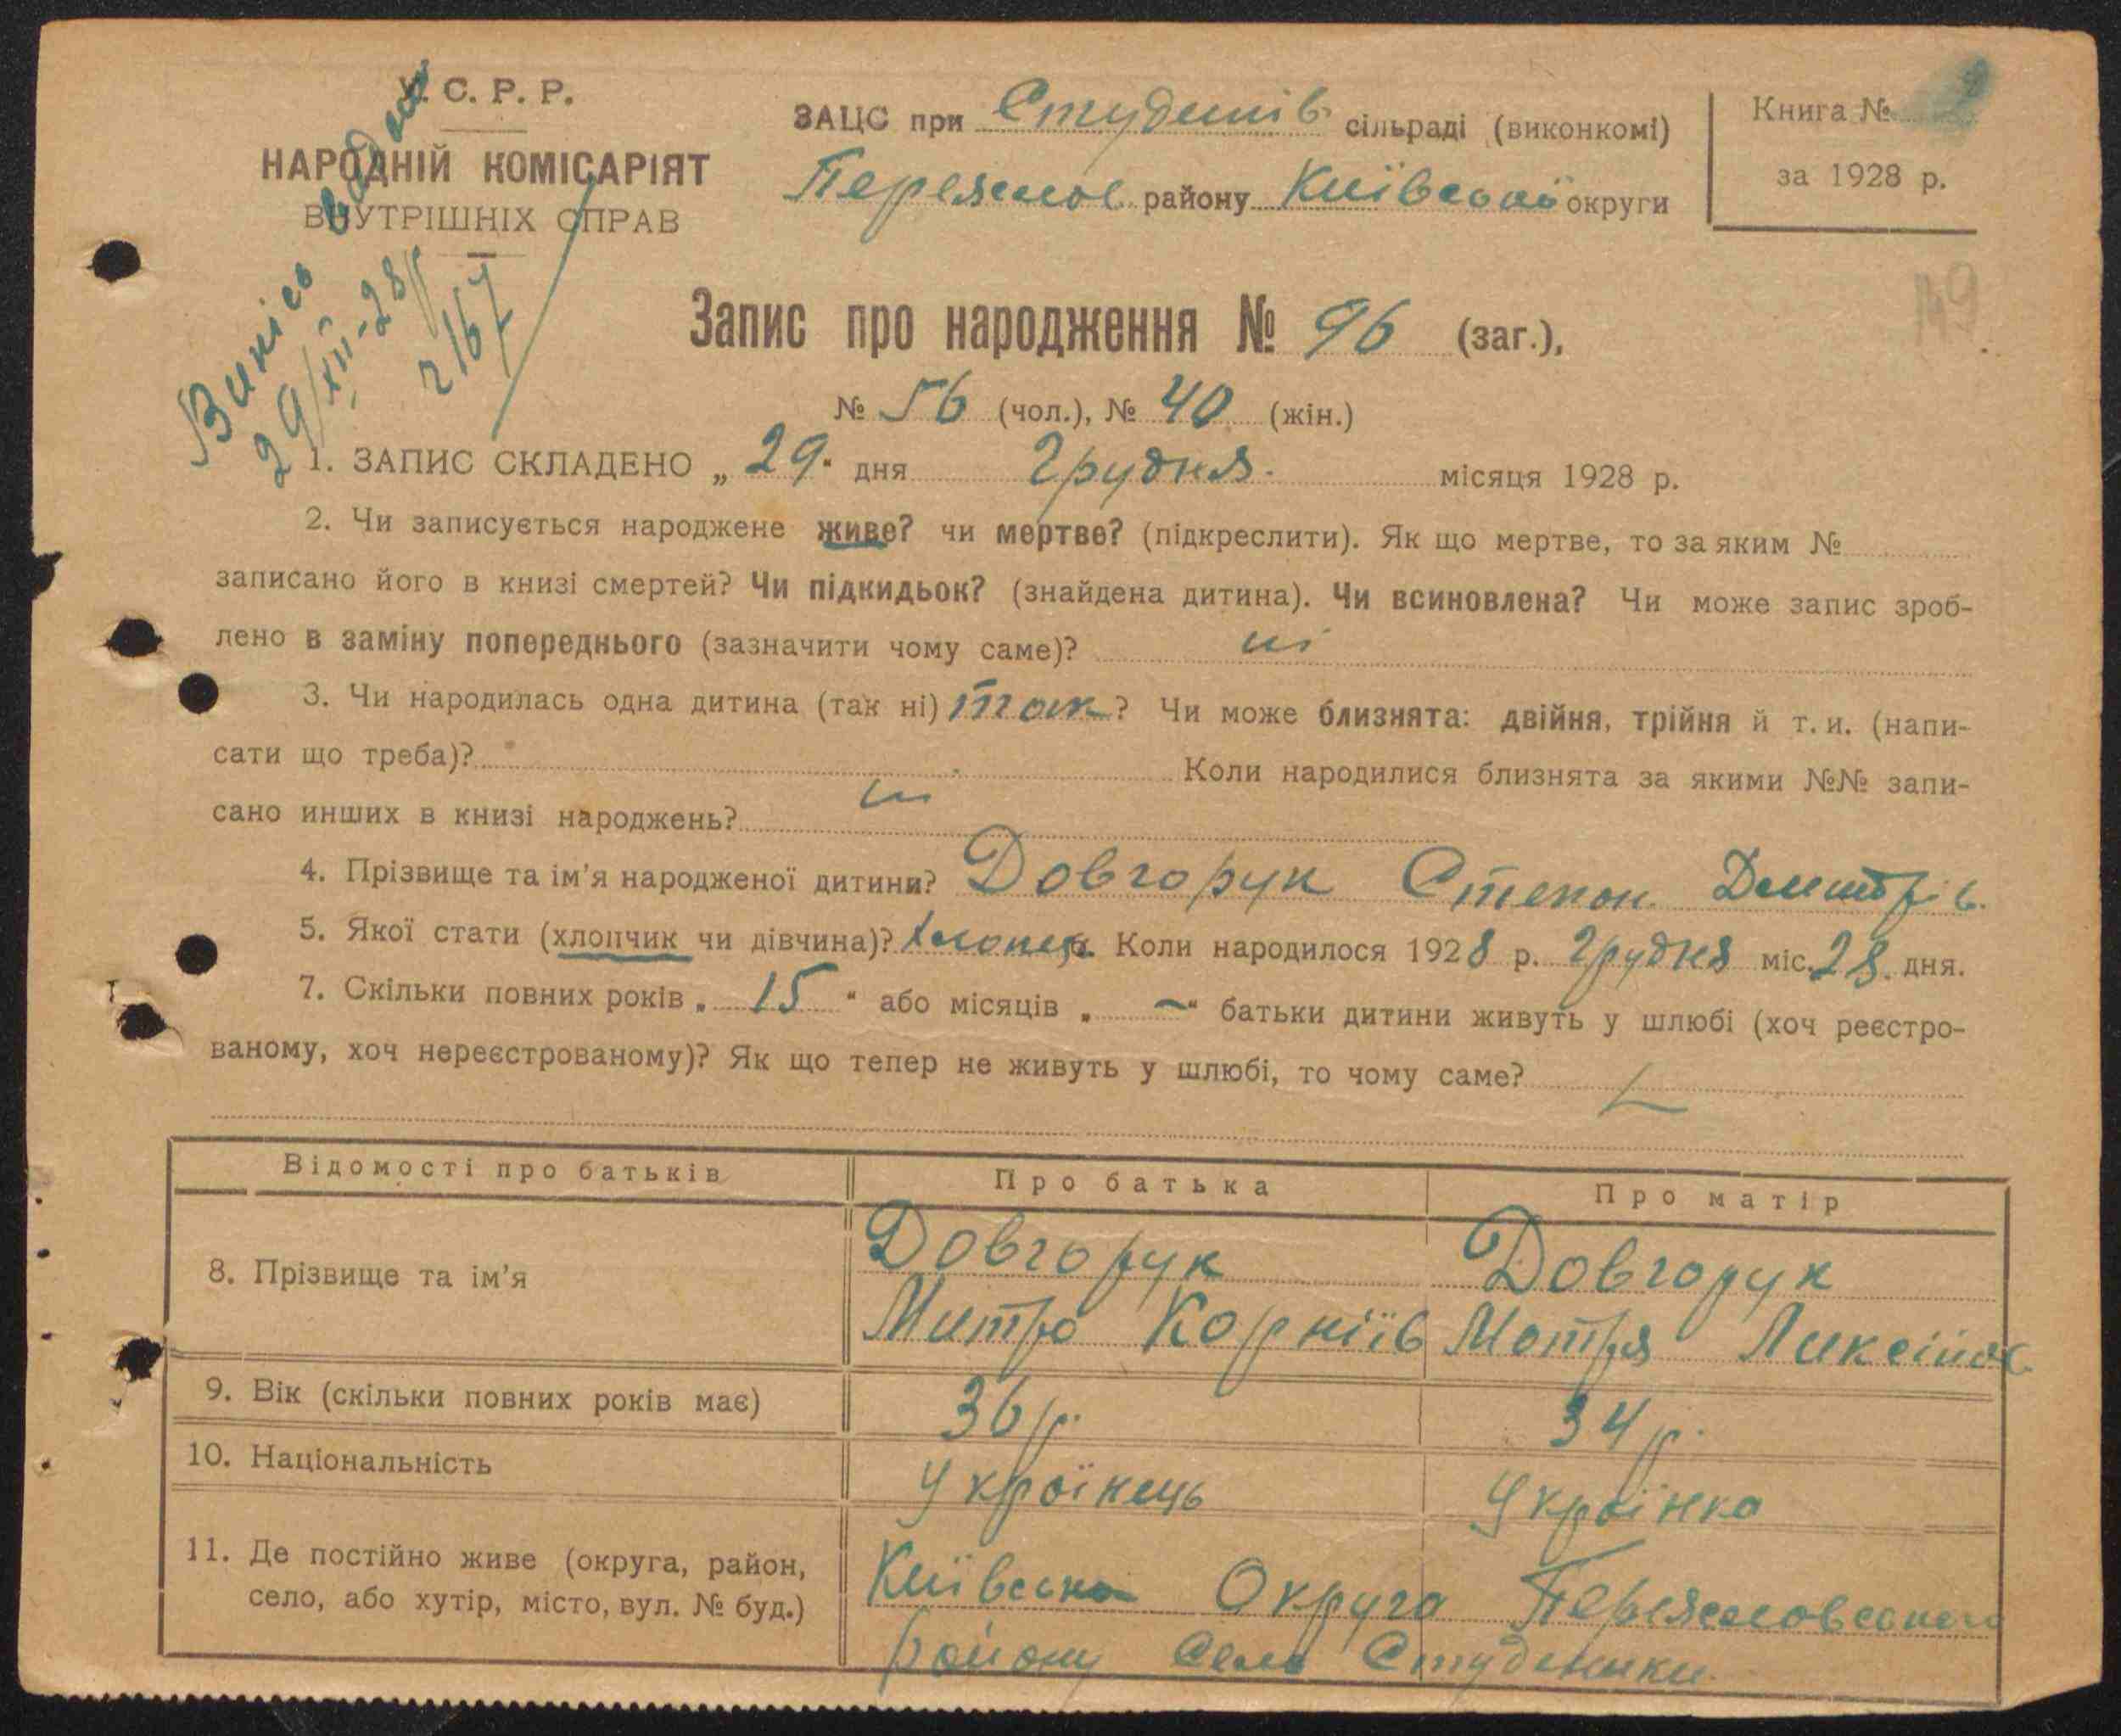 У. С. Р. Р.
НАРОДНІЙ КОМІСАРІЯТ
ВНУТРІШНІХ СПРАВ
Випісь видана
29/XII-28
2167
ЗАЦС при Студенів сільраді (виконкомі)
Переяслов району Київської округи
Книга №
за 1928 р.
149
Запис про народження № 96 (заг.),
№ 56 (чол.), № 40 (жін.)
1. ЗАПИС СКЛАДЕНО „ 29 “ дня Грудня місяця 1928 р.
2. Чи записується народжене живе? чи мертве? (підкреслити). Як що мертве, то за яким №
записано його в книзі смертей? Чи підкидьок? (знайдена дитина). Чи всиновлена? Чи може запис зроб-
лено в заміну попереднього (зазначити чому саме)? ні
3. Чи народилась одна дитина (так ні) так ? Чи може близнята: двійня, трійня й т. и. (напи-
сати що треба)? Коли народилися близнята за якими №№ запи-
сано инших в книзі народжень? ні
4. Прізвище та ім’я народженої дитини? Довгорук Степан Дмитрів.
5. Якої стати (хлопчик чи дівчина)? Хлопець. Коли народилося 1928 р. Грудня міс. 28. дня.
7. Скільки повних років „ 15 “ або місяців „ — “ батьки дитини живуть у шлюбі (хоч реєстро-
ваному, хоч нереєстрованому)? Як що тепер не живуть у шлюбі, то чому саме?
Відомості про батьків Про батька Про матір
8. Прізвище та ім’я Довгорук Довгорук
Митро Корніїв Мотря Ликсійов
9. Вік (скільки повних років має) 36 р. 34 р.
10. Національність Українець Українка
11. Де постійно живе (округа, район, Київська Округа Переясловського
село, або хутір, місто, вул. № буд.) району село Студеники